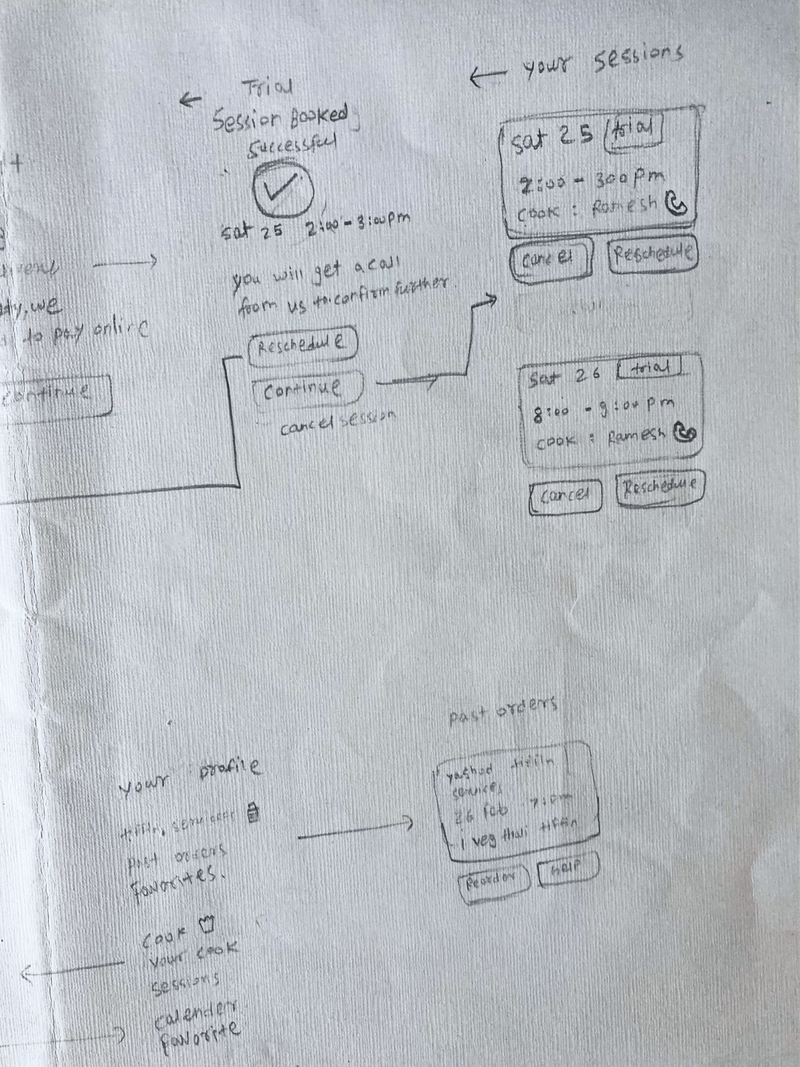 Trial
Session Booked
Successful
Sat 25 2:00 - 3:00 pm
you will get a call
from us to confirm further
Reschedule
Continue
cancel session
to pay online
continue
your sessions
Sat 25 trial
2:00 - 300 pm
cook : Ramesh
Cancel
Reschedule
Sat 26 trial
8:00 - 9:00 pm
cook : Ramesh
Cancel
Reschedule
your profile
tiffin services
past orders
favorites.
cook
your cook
sessions
calender
favorite
past orders
yashod tiffin
services
26 feb 7:pm
1 veg thali tiffin
Reorder
help